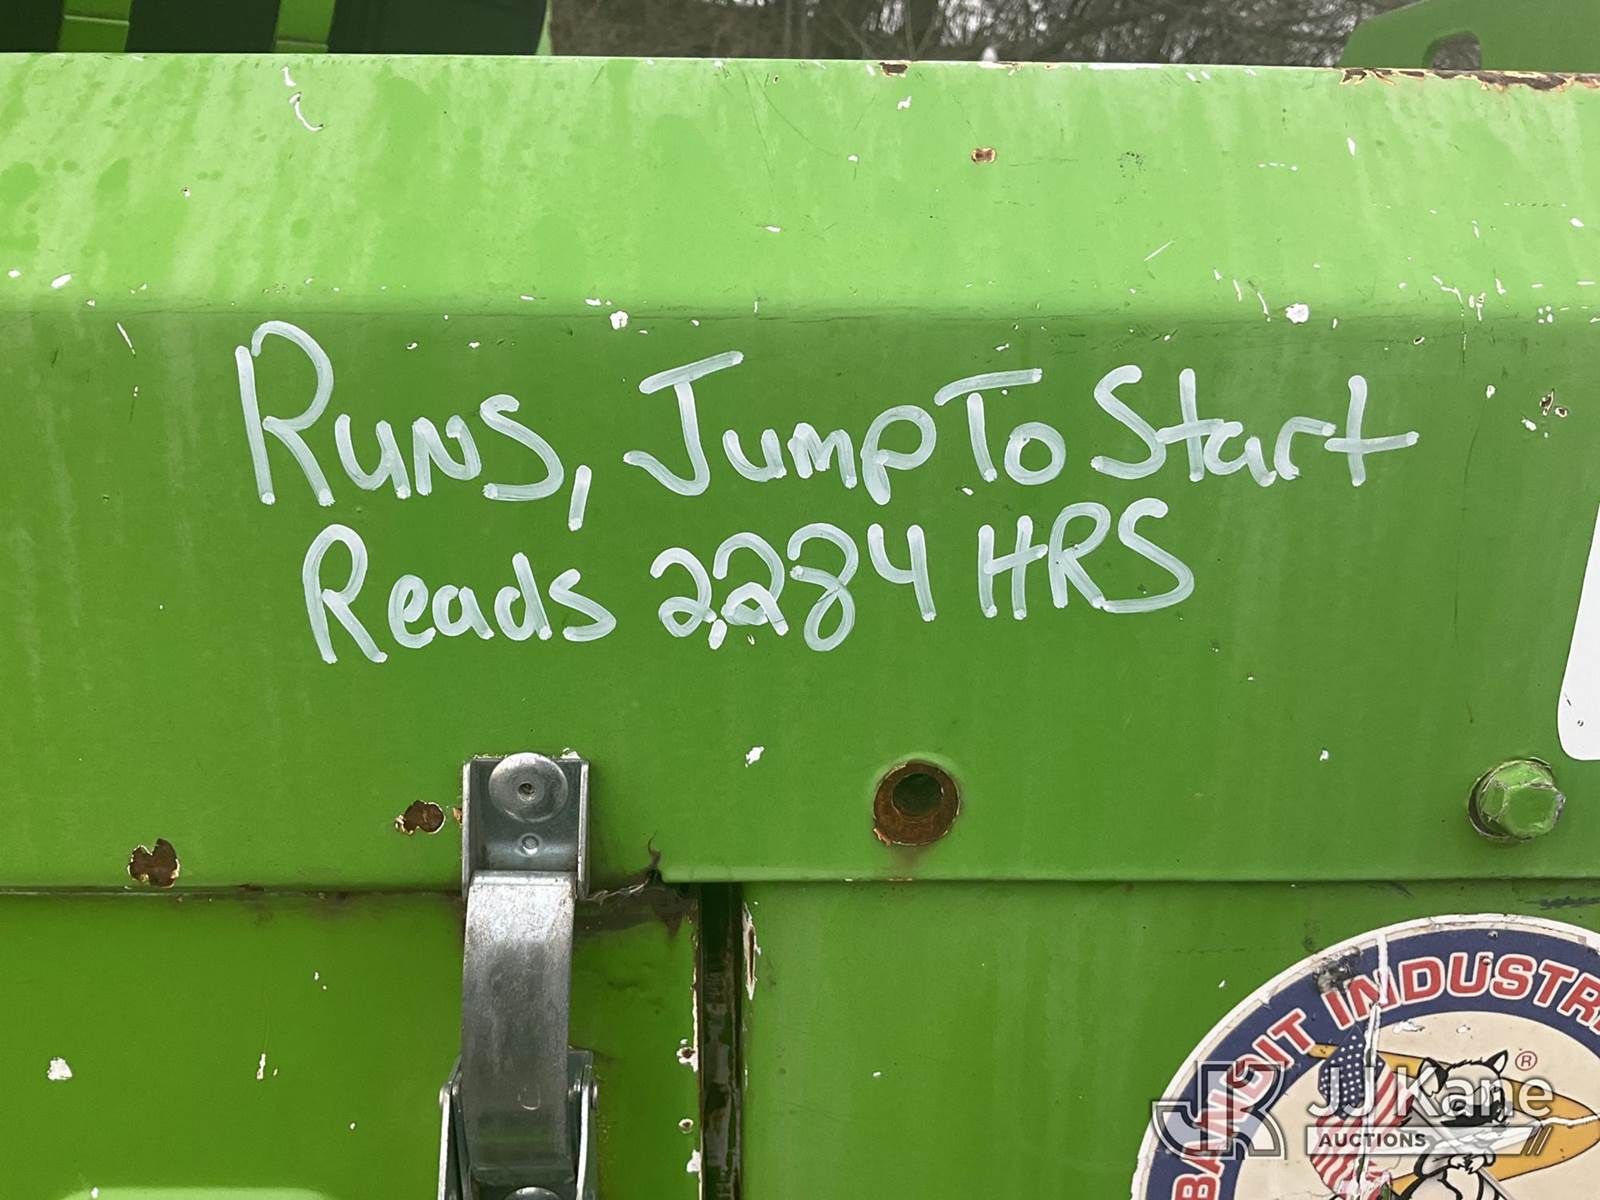 Runs, Jump To Start
Reads 2,284 HRS
BANDIT INDUSTR
®
JJ Kane
AUCTIONS